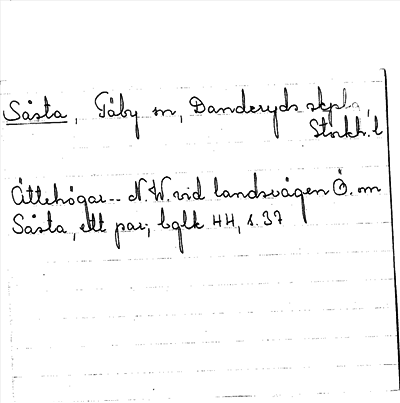 Såsta, Täby sn, Danderyds skpl.,
Stockh. l
Ättehögar -- N.W. vid landsvägen Ö. om
Såsta, ett par; bglk 44, s. 37